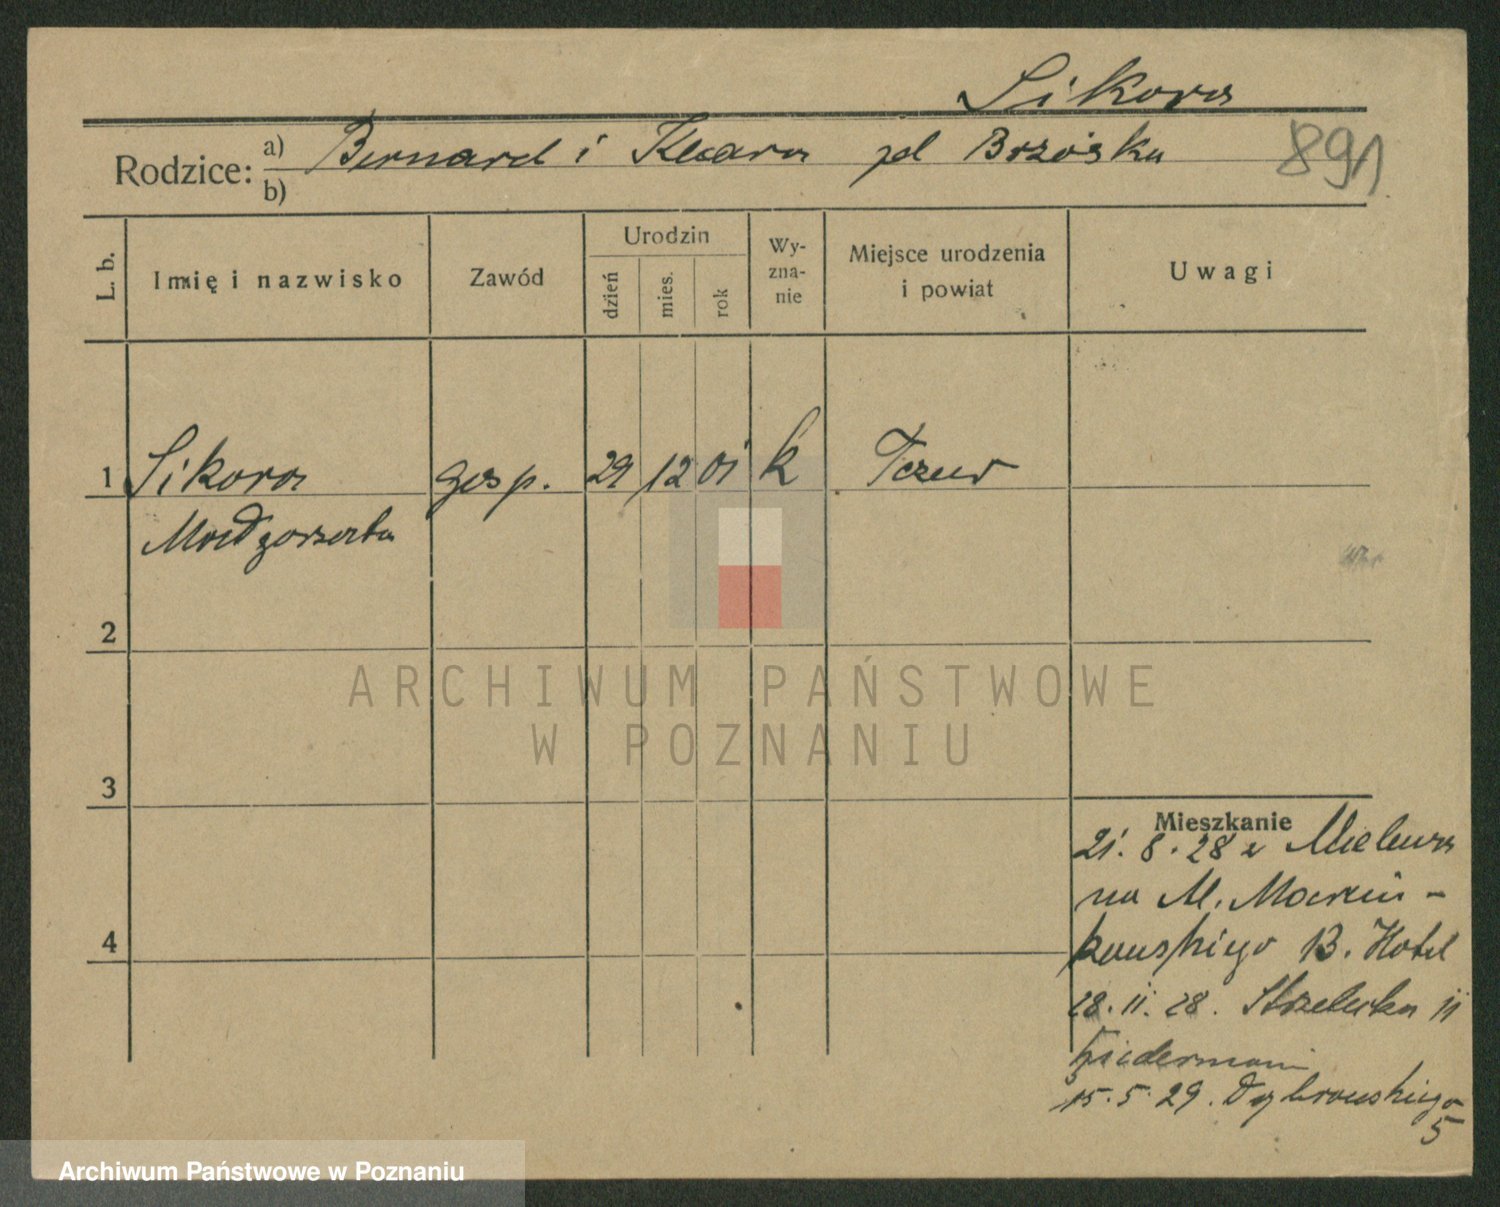 Sikora
Rodzice: a) Bernard i Klara zd Brzóska
b)
891
L. b.
Imię i nazwisko
Zawód
Urodzin
dzień
mies.
rok
Wy-
zna-
nie
Miejsce urodzenia
i powiat
Uwagi
1 Sikora gosp. 29 12 01 k Tczew
Małgorzata
2
ARCHIWUM PAŃSTWOWE
W POZNANIU
3
Mieszkanie
21. 8. 28 z Mielewa
na M. Marcin-
kowskiego B. Hotel
28. 11. 28. Strzelecka 11
15. 5. 29. Dąbrowskiego
5
4
Archiwum Państwowe w Poznaniu